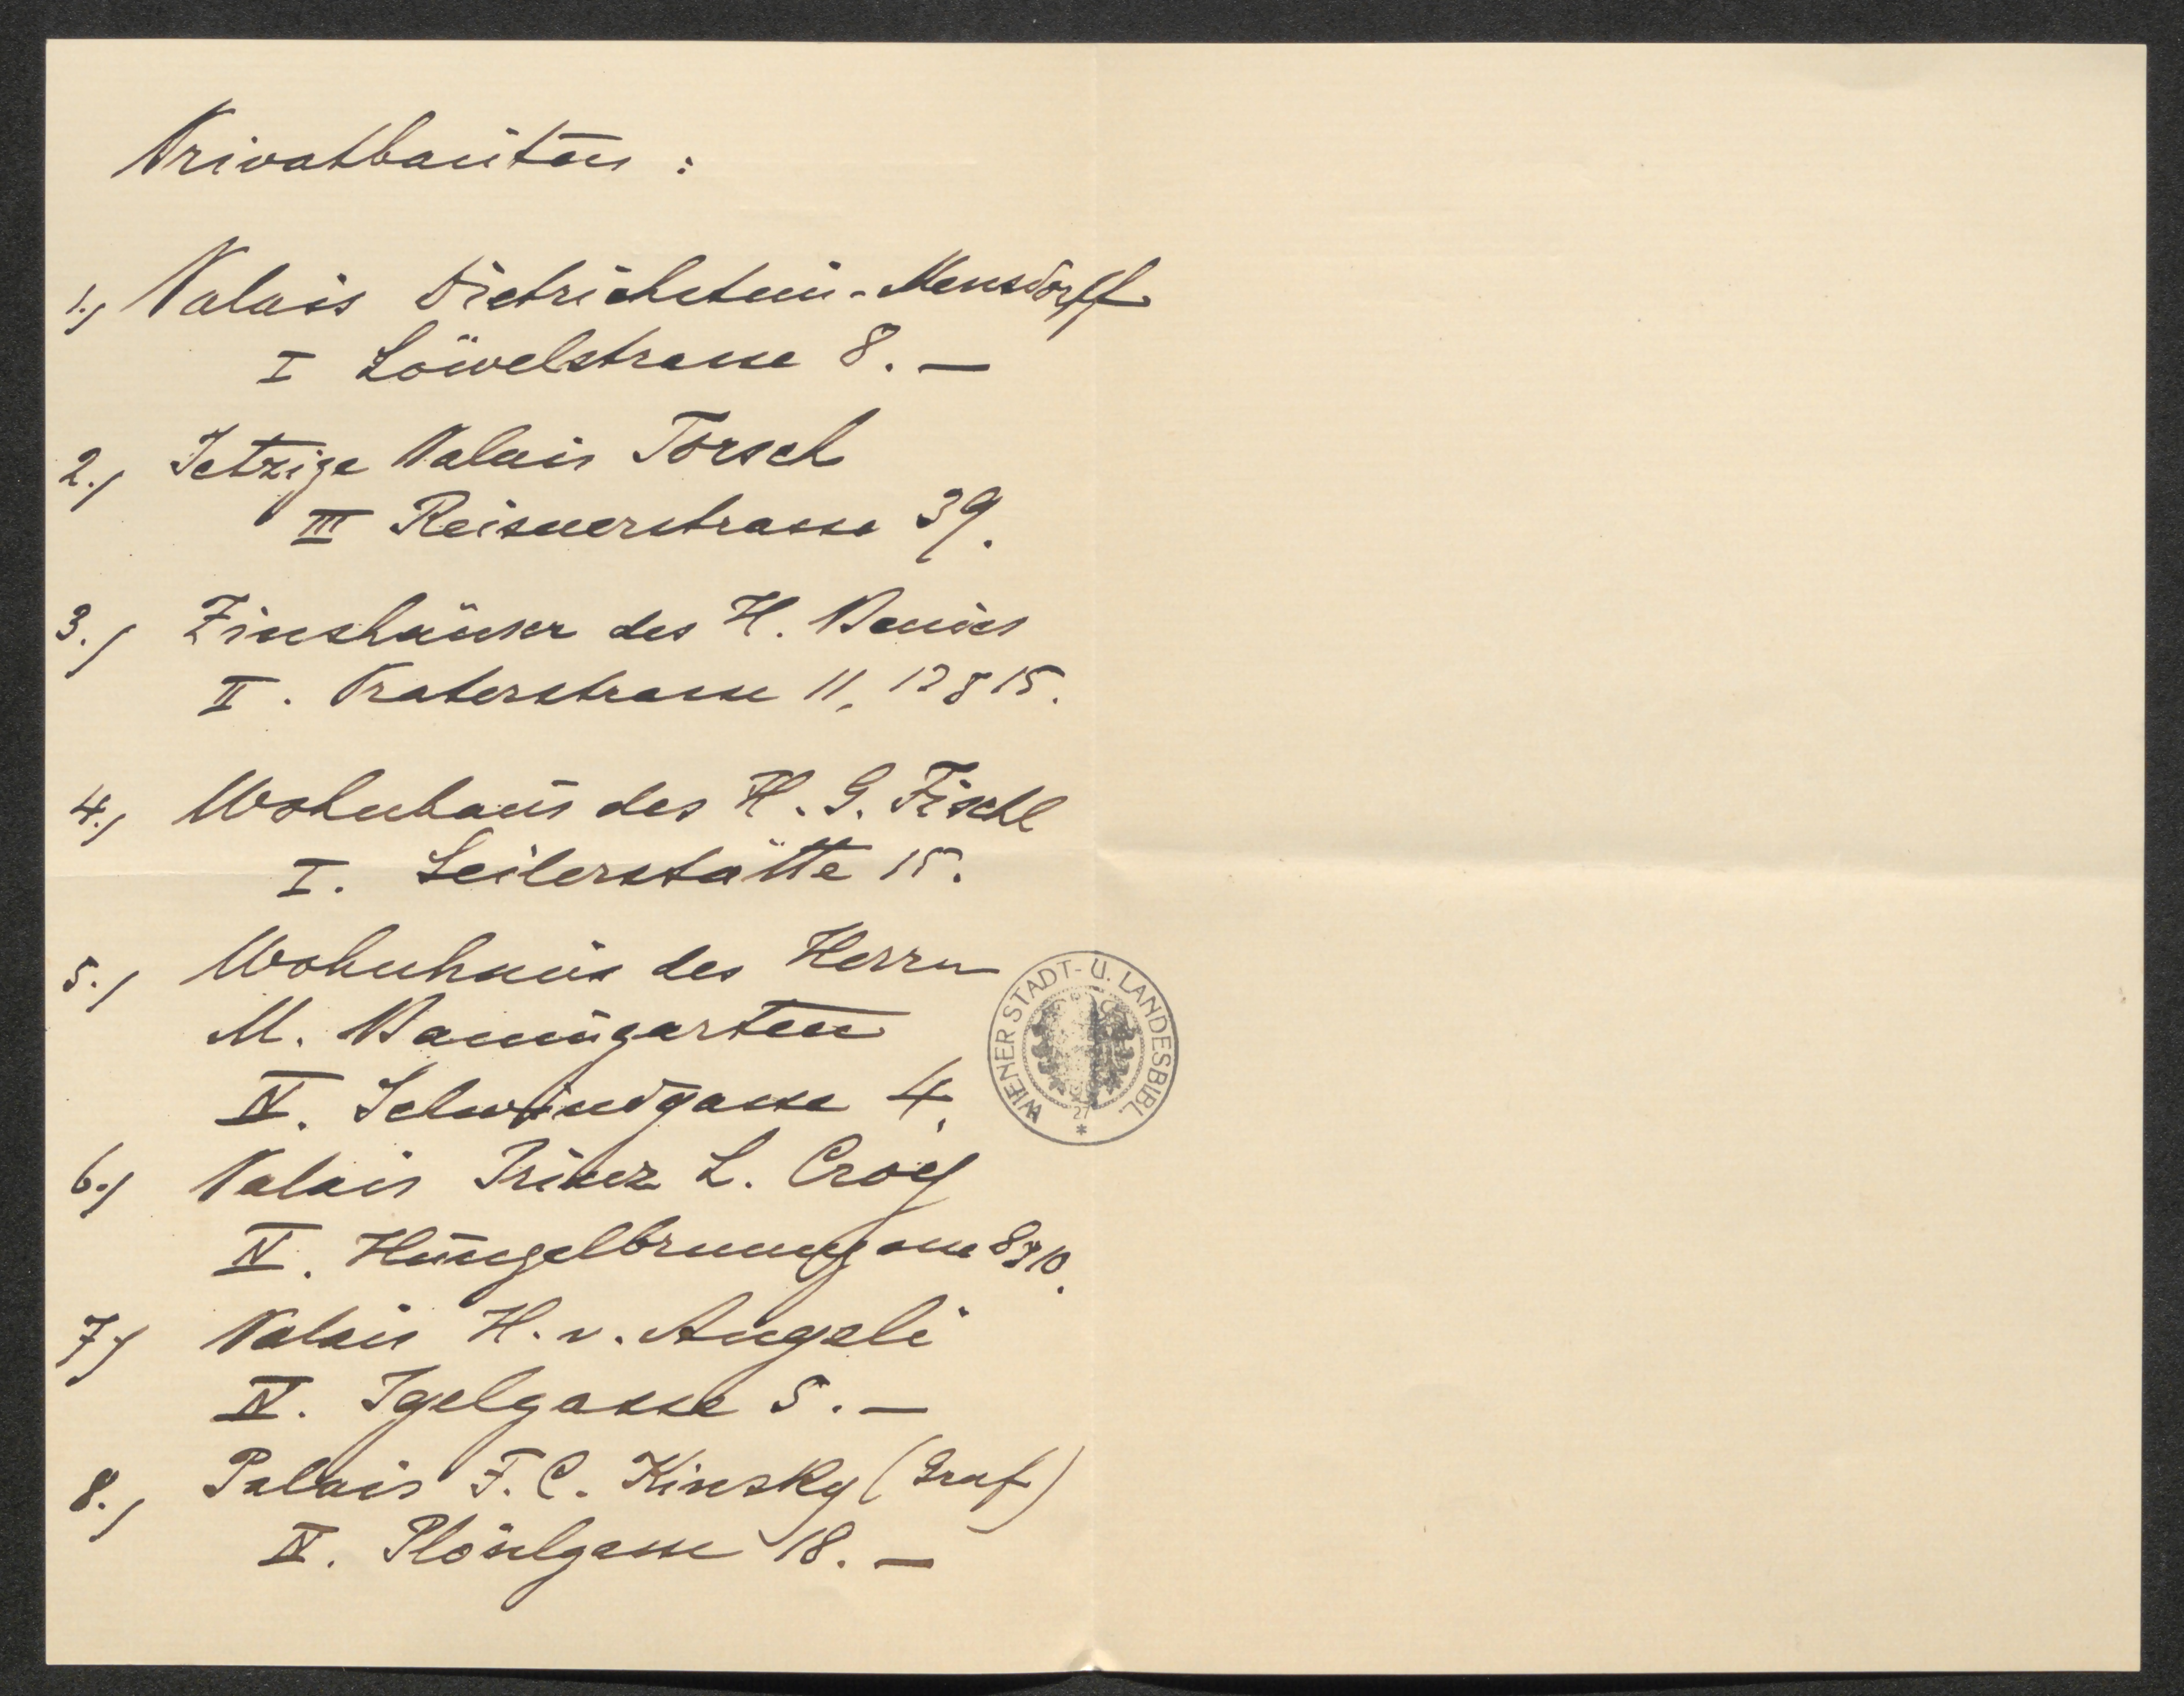 Privatbauten :
1./ Palais Dietrichstein-Mensdorff
I Löwelstrasse 8. —
2./ Jetzige Palais Torsch
III Reisnerstrasse 39.
3./ Zinshäuser des H.
II. Praterstrasse 11, 13 & 15.
4./ Wohnhaus des H. G. Fischl
I. Seilerstätte 15.
5./ Wohnhaus des Herrn
M. Baumgarten
IV. Schwindgasse 4.
6./ Palais Prinz L. Croy
IV. Hungelbrunngasse 8 & 10.
7./ Palais H. v. Angeli
IV. Igelgasse 5. —
8./ Palais F. C. Kinsky (Graf)
IV. Plösslgasse 18. —
WIENER STADT- U. LANDESBIBL.
27